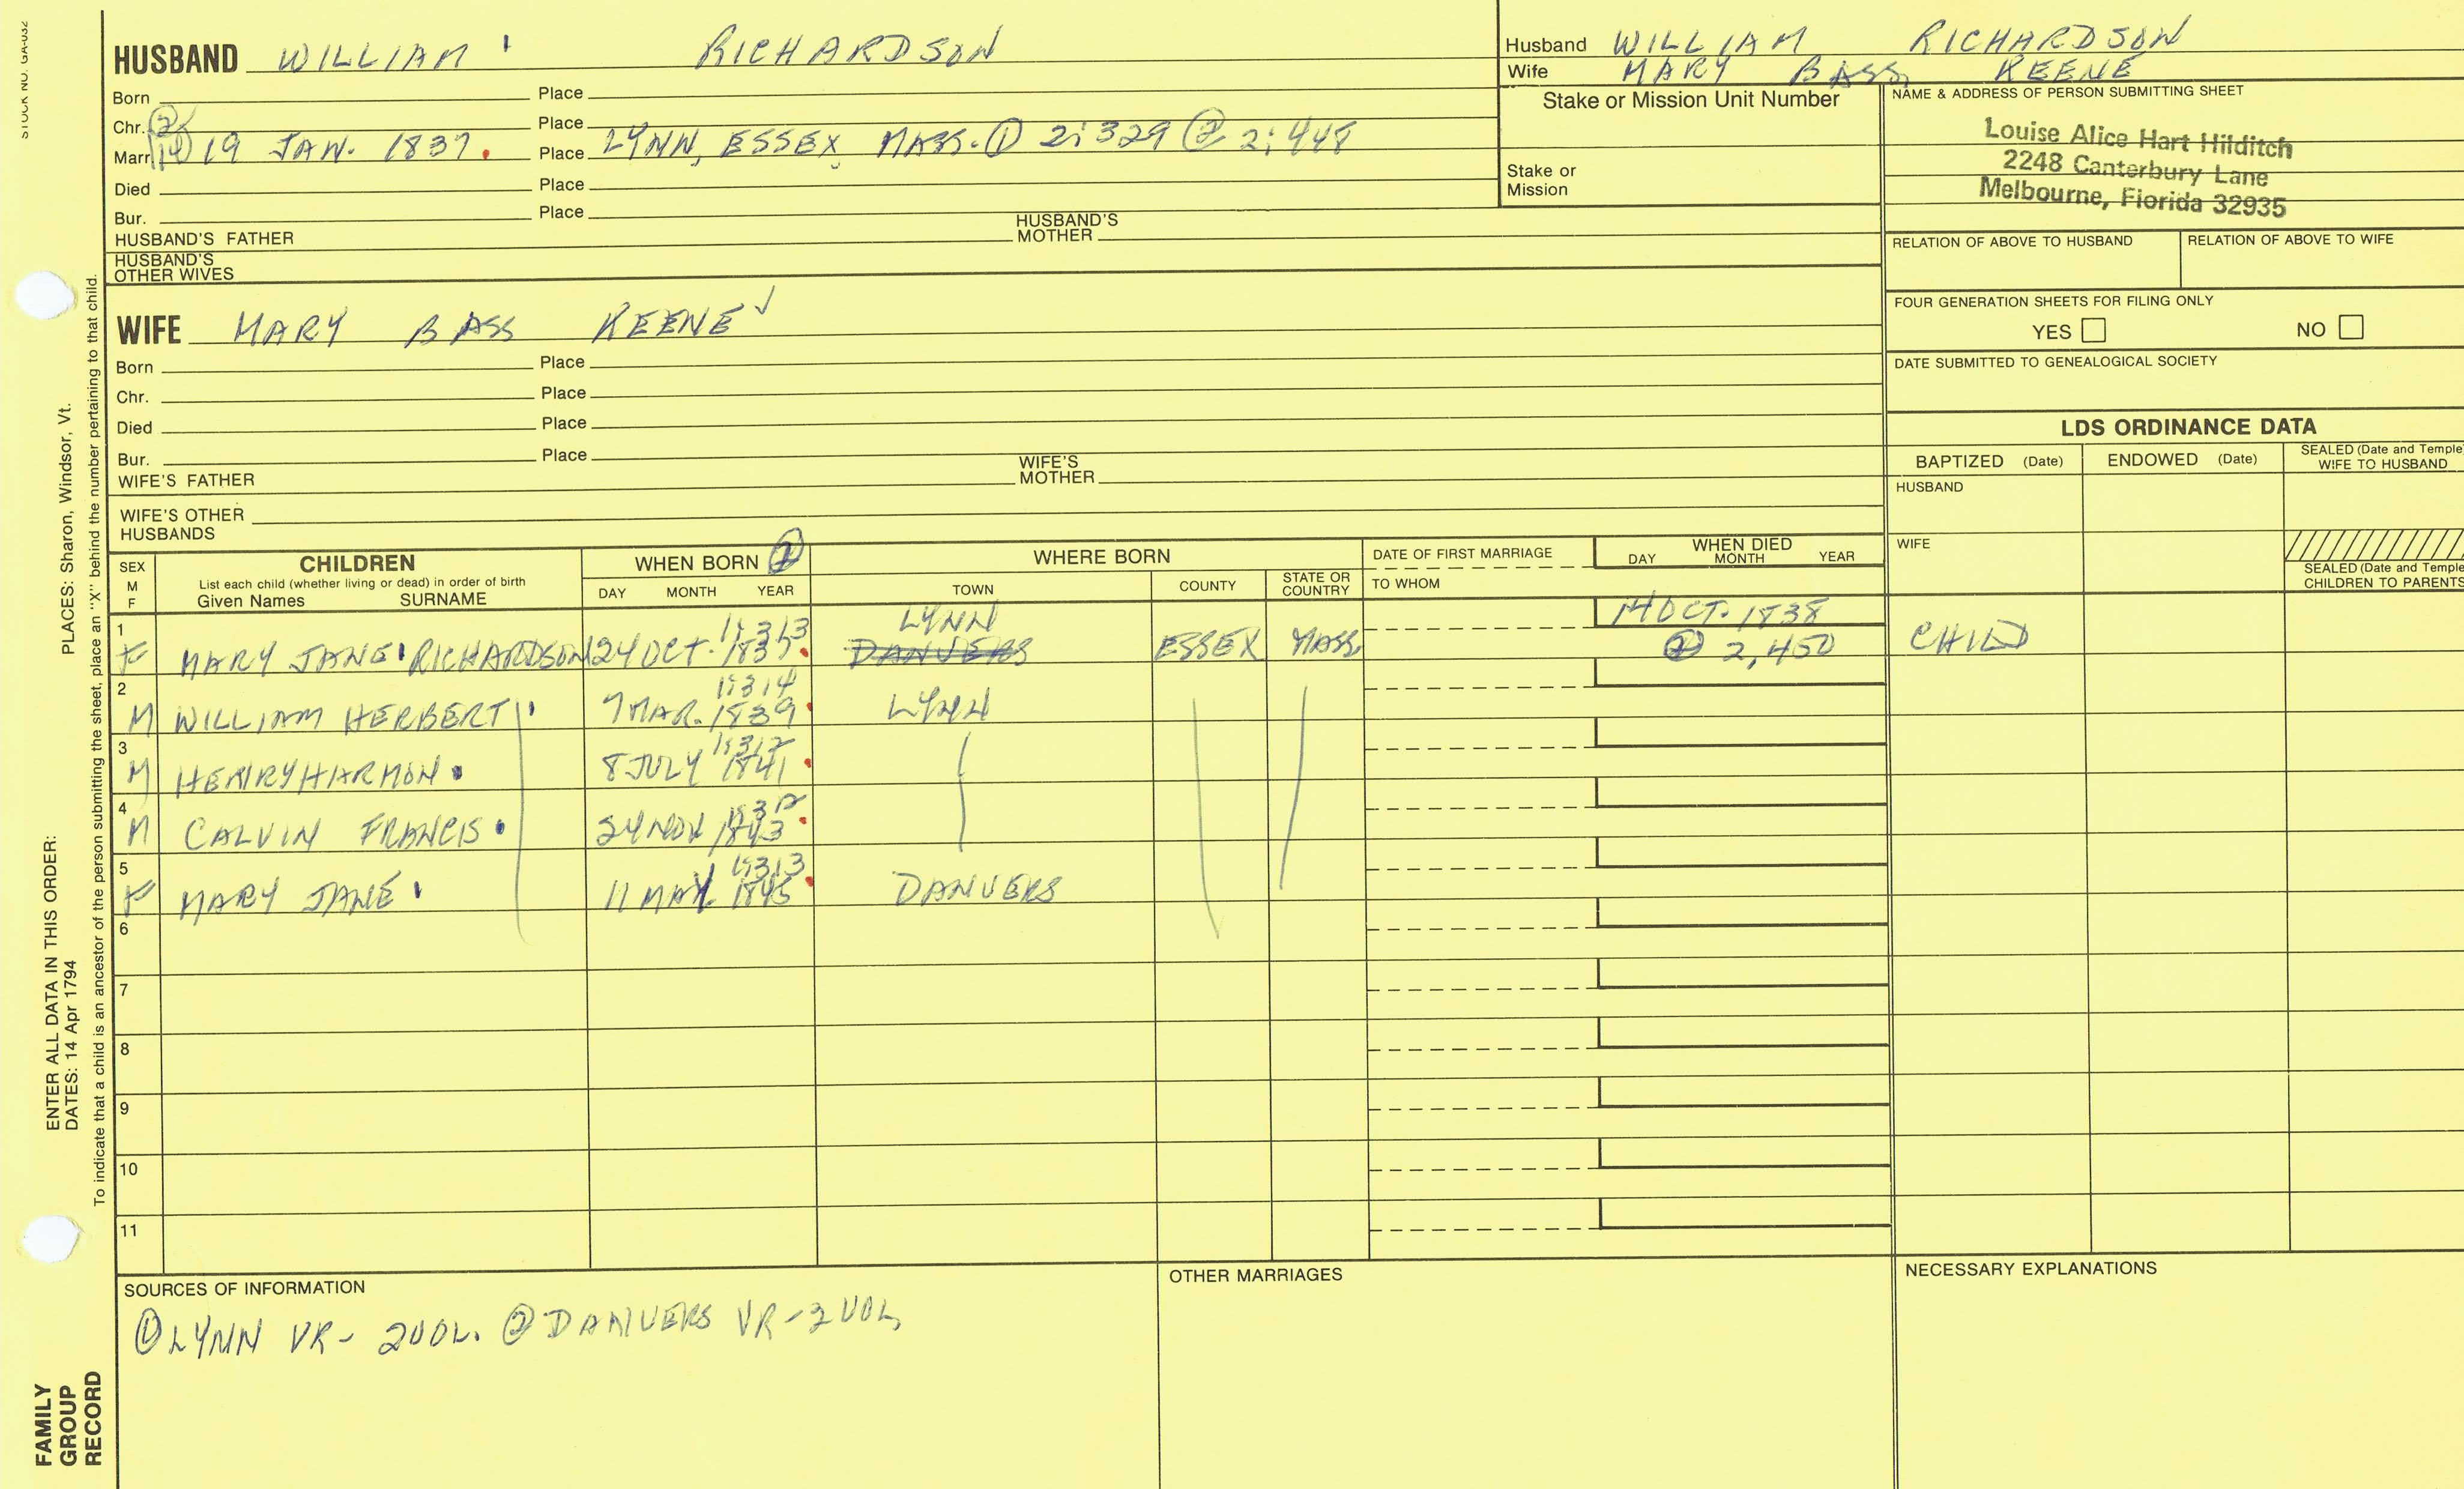 STOCK NO. GA-032
HUSBAND WILLIAM RICHARDSON
Born Place
Chr. Place
Marr. 19 JAN. 1837. Place LYNN, ESSEX, MASS. ① 2:329 ② 2:448
Died Place
Bur. Place
HUSBAND'S FATHER HUSBAND'S MOTHER
HUSBAND'S OTHER WIVES
Husband WILLIAM RICHARDSON
Wife MARY BASS KEENE
Stake or Mission Unit Number
Stake or Mission
NAME & ADDRESS OF PERSON SUBMITTING SHEET
Louise Alice Hart Hilditch
2248 Canterbury Lane
Melbourne, Florida 32935
RELATION OF ABOVE TO HUSBAND RELATION OF ABOVE TO WIFE
FOUR GENERATION SHEETS FOR FILING ONLY
YES NO
DATE SUBMITTED TO GENEALOGICAL SOCIETY
WIFE MARY BASS KEENE
Born Place
Chr. Place
Died Place
Bur. Place
WIFE'S FATHER WIFE'S MOTHER
WIFE'S OTHER HUSBANDS
LDS ORDINANCE DATA
BAPTIZED (Date) ENDOWED (Date) SEALED (Date and Temple) WIFE TO HUSBAND
HUSBAND
WIFE
SEALED (Date and Temple) CHILDREN TO PARENTS
SEX M F
CHILDREN
List each child (whether living or dead) in order of birth
Given Names SURNAME
WHEN BORN ②
DAY MONTH YEAR
WHERE BORN
TOWN COUNTY STATE OR COUNTRY
DATE OF FIRST MARRIAGE
TO WHOM
WHEN DIED
DAY MONTH YEAR
1 F MARY JANE RICHARDSON 24 OCT. 1837. 1:313 LYNN DANVERS ESSEX MASS. 14 OCT. 1838 ② 2,450 CHILD
2 M WILLIAM HERBERT 7 MAR. 1839 1:314 LYNN
3 M HENRY HARMON 8 JULY 1841 1:312
4 M CALVIN FRANCIS 24 NOV 1843
5 F MARY JANE 11 MAY 1845 1:313 DANVERS
6
7
8
9
10
11
SOURCES OF INFORMATION
① LYNN VR - 2 VOL. ② DANVERS VR - 2 VOL,
OTHER MARRIAGES
NECESSARY EXPLANATIONS
ENTER ALL DATA IN THIS ORDER:
DATES: 14 Apr 1794 PLACES: Sharon, Windsor, Vt.
To indicate that a child is an ancestor of the person submitting the sheet, place an "X" behind the number pertaining to that child.
FAMILY GROUP RECORD